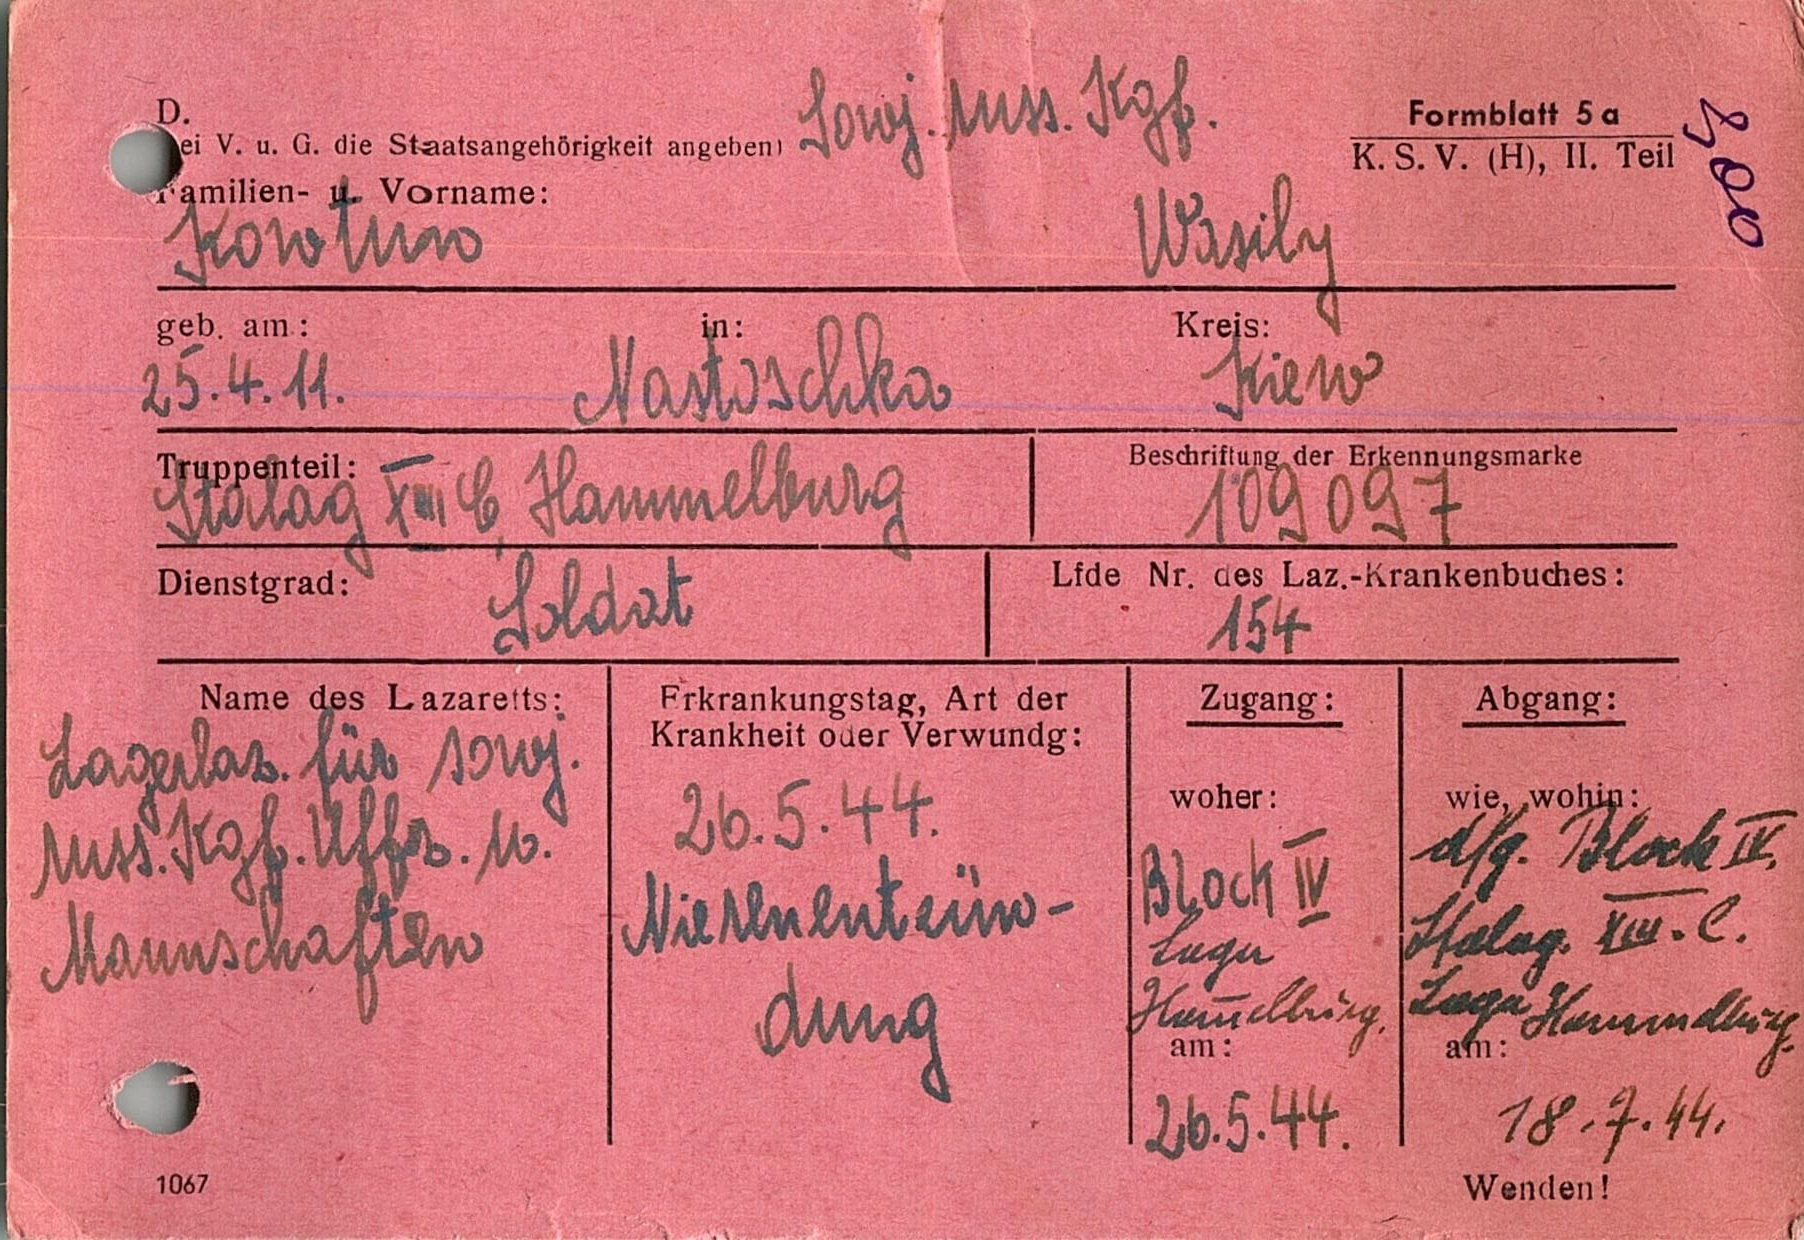 D.
ei V. u. G. die Staatsangehörigkeit angeben) Sowj. russ. Kgf.
Formblatt 5a
K. S. V. (H), II. Teil
Familien- u. Vorname:
Kowtun Wasily
geb. am: in: Kreis:
25.4.11. Nastaschka Kiew
Truppenteil: Beschriftung der Erkennungsmarke
Stalag XIII C, Hammelburg 109097
Dienstgrad: Lfde Nr. des Laz.-Krankenbuches:
Soldat 154
Name des Lazaretts:
Lagerlaz. für sowj.
russ. Kgf. Uffz. u.
Mannschaften
Erkrankungstag, Art der
Krankheit oder Verwundg:
26.5.44.
Nierenentzün-
dung
Zugang:
woher:
Block IV
Lager
Hammelburg.
am:
26.5.44.
Abgang:
wie, wohin:
Block IV.
Stalag. XIII. C.
Lager Hammelburg.
am:
18.7.44.
1067
Wenden!